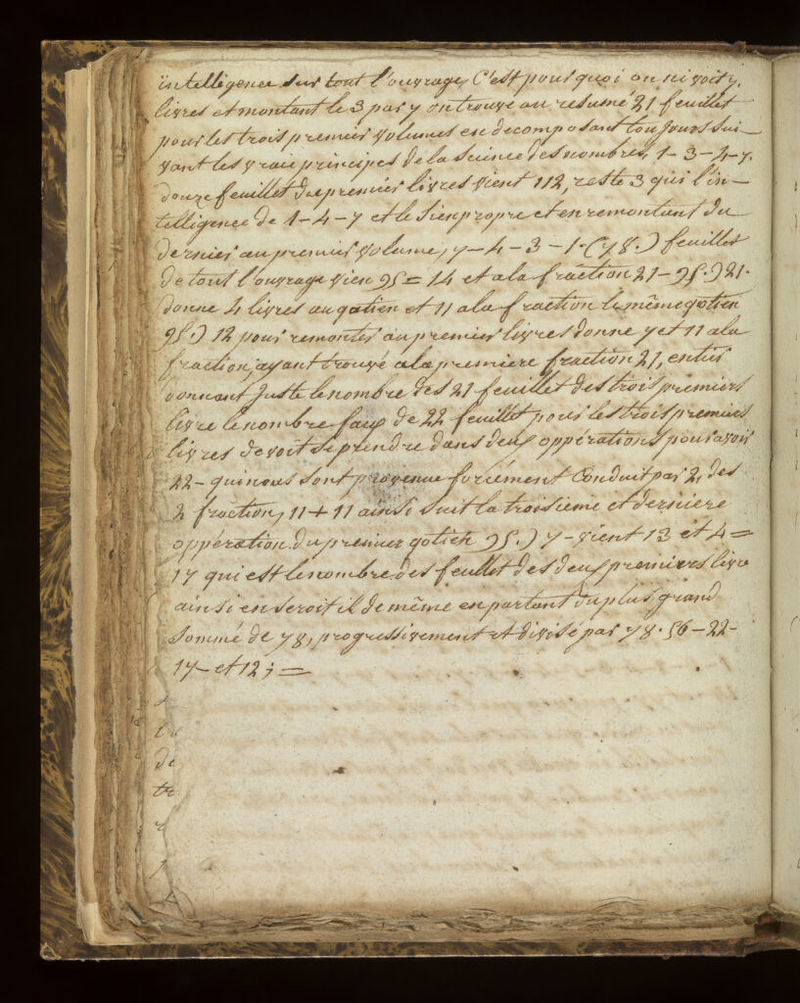 intelligence sur tout l'ouvrage, C'est pourquoi on ici voit 7,
livres et montant le 3 par 7 on trouve au resumé 21 feuillet
pour les trois premier volumes en decomposant toujours sui-
vant les vrais principes de la Science des nombres, 1- 3-4-7.
douze feuillet du premier livres vient 112, reste 3 qui l'in-
telligence de 1-4-7 et le sien propre et en remontant du
dernier au premier volume, 7-4-3-1-(78.) feuillet
de tout l'ouvrage vien 95 = 14 et a la fraction 21-95.)21.
donne 4 livres au qotien et 11 a la fraction le même qotien
95.) 12 pour remonter au premier livres donne 7 et 11 a la
fraction, ayant trouvé a la premiere fraction 21, entier
donnant juste le nombre des 21 feuillet des trois premiers
livre le nombre faux de 22 feuillet pour les trois premiers
livres devoit se prendre dans deux opperations pour avoir
22- qui nous sont provenue forcément Conduit par 2, des
2 fraction, 11+11 ainsi suit la troisieme et derniere
opperation. du premier qotien 95.) 7- vient 13 et 4 =
17 qui est le nombre des feuillet des deux premieres livre
ainsi en seroit il de même en partant du plus grand
sommé de 78, progressivement et divisé par 78. 56-22-
17- et 12 ; =